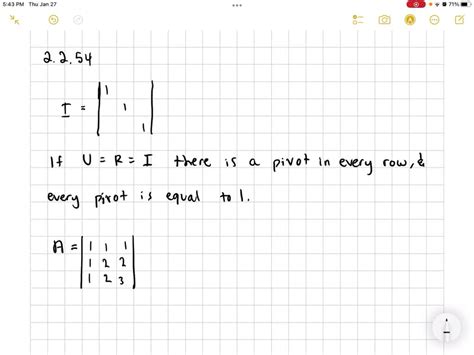 5:43 PM Thu Jan 27
71%
2.2.54
1
I = 1
1
If U = R = I there is a pivot in every row, &
every pivot is equal to 1.
1 1 1
A = 1 2 2
1 2 3